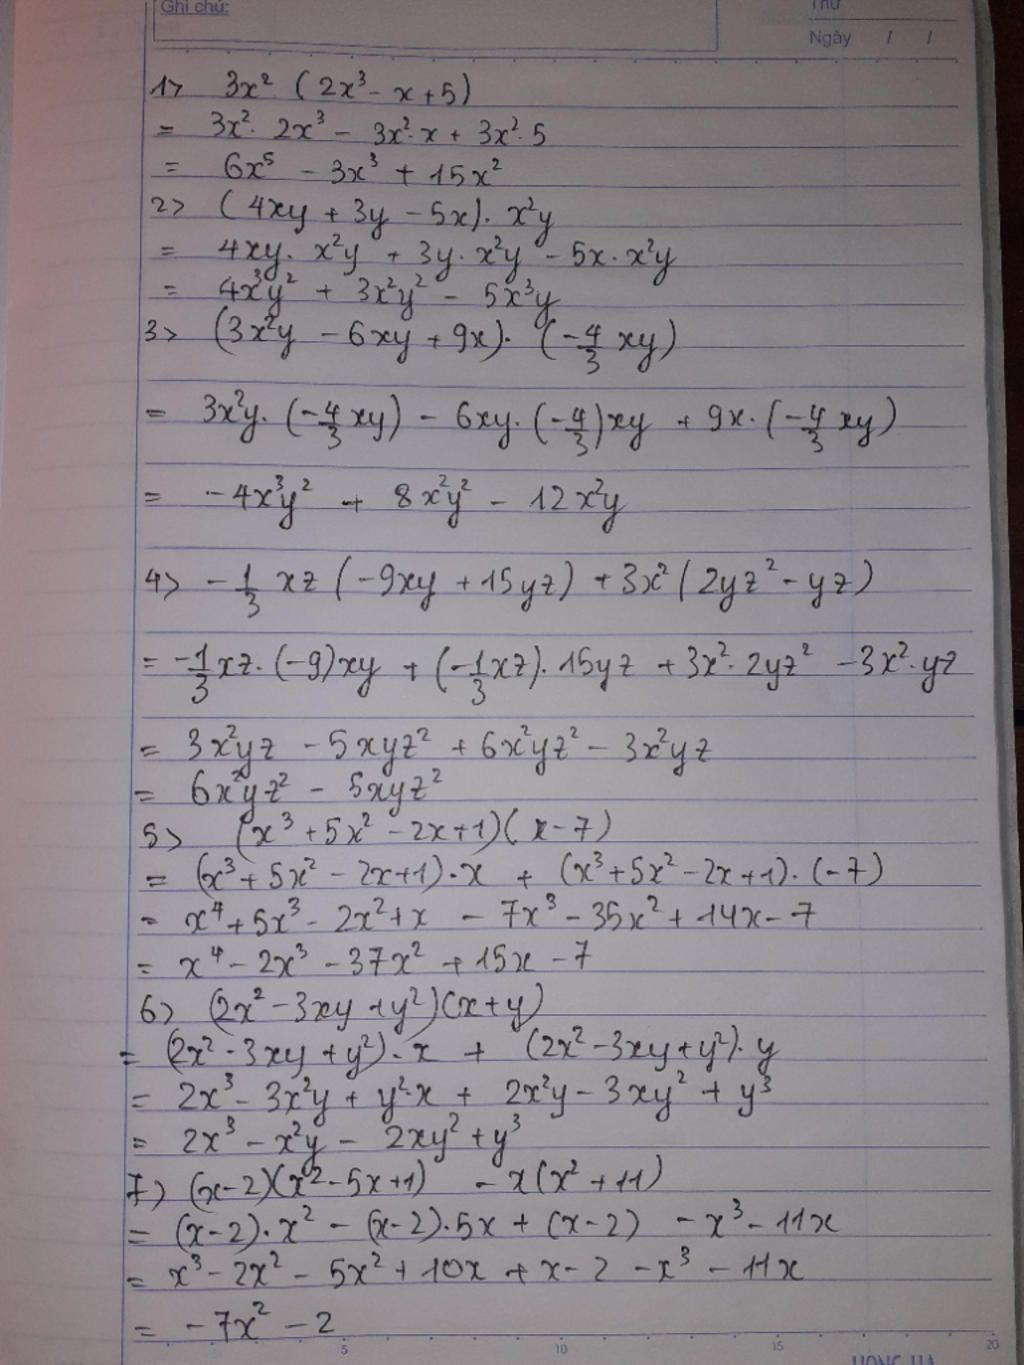 Ghi chú:
Thứ
Ngày / /
1> 3x² (2x³ - x + 5)
= 3x² · 2x³ - 3x² · x + 3x² · 5
= 6x⁵ - 3x³ + 15x²
2> (4xy + 3y - 5x) · x²y
= 4xy · x²y + 3y · x²y - 5x · x²y
= 4x³y² + 3x²y² - 5x³y
3> (3x²y - 6xy + 9x) · (-4/3 xy)
= 3x²y · (-4/3 xy) - 6xy · (-4/3)xy + 9x · (-4/3 xy)
= -4x³y² + 8x²y² - 12x²y
4> -1/3 xz (-9xy + 15yz) + 3x² (2yz² - yz)
= -1/3 xz · (-9)xy + (-1/3 xz) · 15yz + 3x² · 2yz² - 3x² · yz
= 3x²yz - 5xyz² + 6x²yz² - 3x²yz
= 6x²yz² - 5xyz²
5> (x³ + 5x² - 2x + 1)(x - 7)
= (x³ + 5x² - 2x + 1) · x + (x³ + 5x² - 2x + 1) · (-7)
= x⁴ + 5x³ - 2x² + x - 7x³ - 35x² + 14x - 7
= x⁴ - 2x³ - 37x² + 15x - 7
6> (2x² - 3xy + y²)(x + y)
= (2x² - 3xy + y²) · x + (2x² - 3xy + y²) · y
= 2x³ - 3x²y + y² · x + 2x²y - 3xy² + y³
= 2x³ - x²y - 2xy² + y³
7> (x - 2)(x² - 5x + 1) - x(x² + 11)
= (x - 2) · x² - (x - 2) · 5x + (x - 2) - x³ - 11x
= x³ - 2x² - 5x² + 10x + x - 2 - x³ - 11x
= -7x² - 2
5 10 15 20